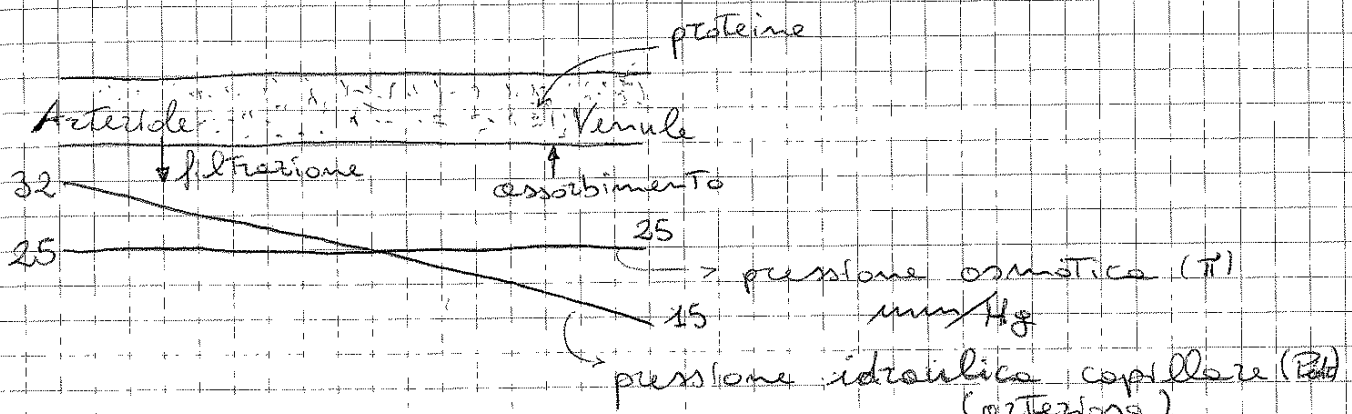 proteine
Arteriole Venule
32 filtrazione assorbimento
25 25
pressione osmotica (π)
15 mm/Hg
pressione idraulica capillare
(arteriosa)